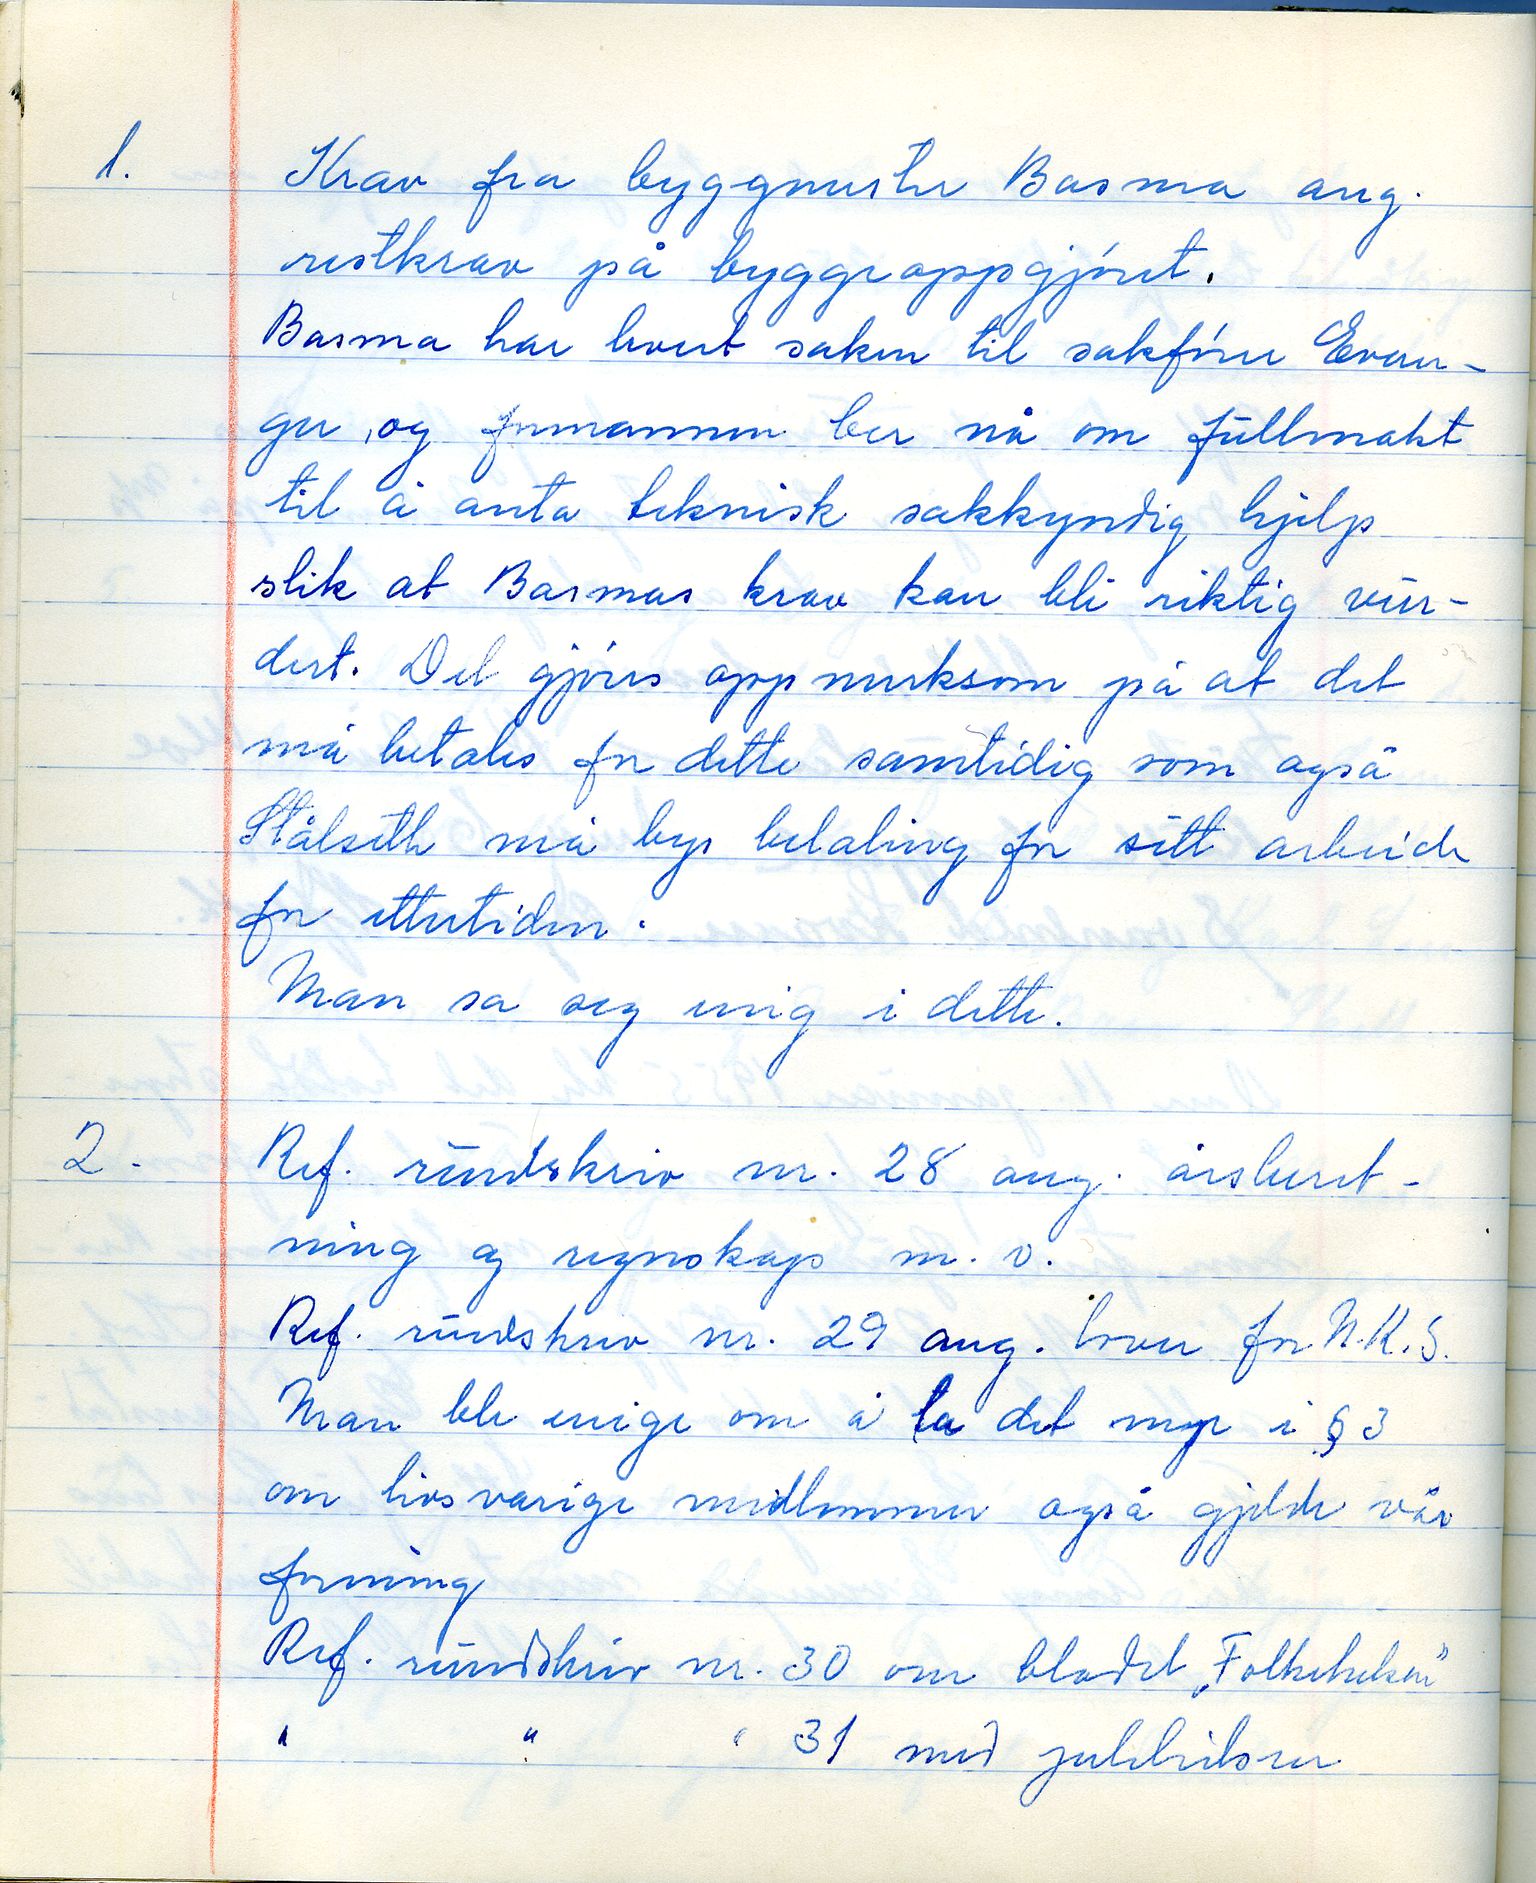 1. Krav fra byggmester Basma ang.
restkrav på byggeoppgjøret.
Basma har levert saken til sakfører Evan-
ger, og formannen ber nå om fullmakt
til å anta teknisk sakkyndig hjelp
slik at Basmas krav kan bli riktig vur-
dert. Det gjøres oppmerksom på at det
må betales for dette samtidig som også
Stålseth må bys betaling for sitt arbeide
for ettertiden.
Man sa seg enig i dette.
2. Ref. rundskriv nr. 28 ang. årsberet-
ning og regnskap m. v.
Ref. rundskriv nr. 29 ang. lover for N.K.S.
Man ble enige om å la det nye i § 3
om livsvarige medlemmer også gjelde vår
forening
Ref. rundskriv nr. 30 om bladet „Folkehelsen"
" " " 31 med julehilsner